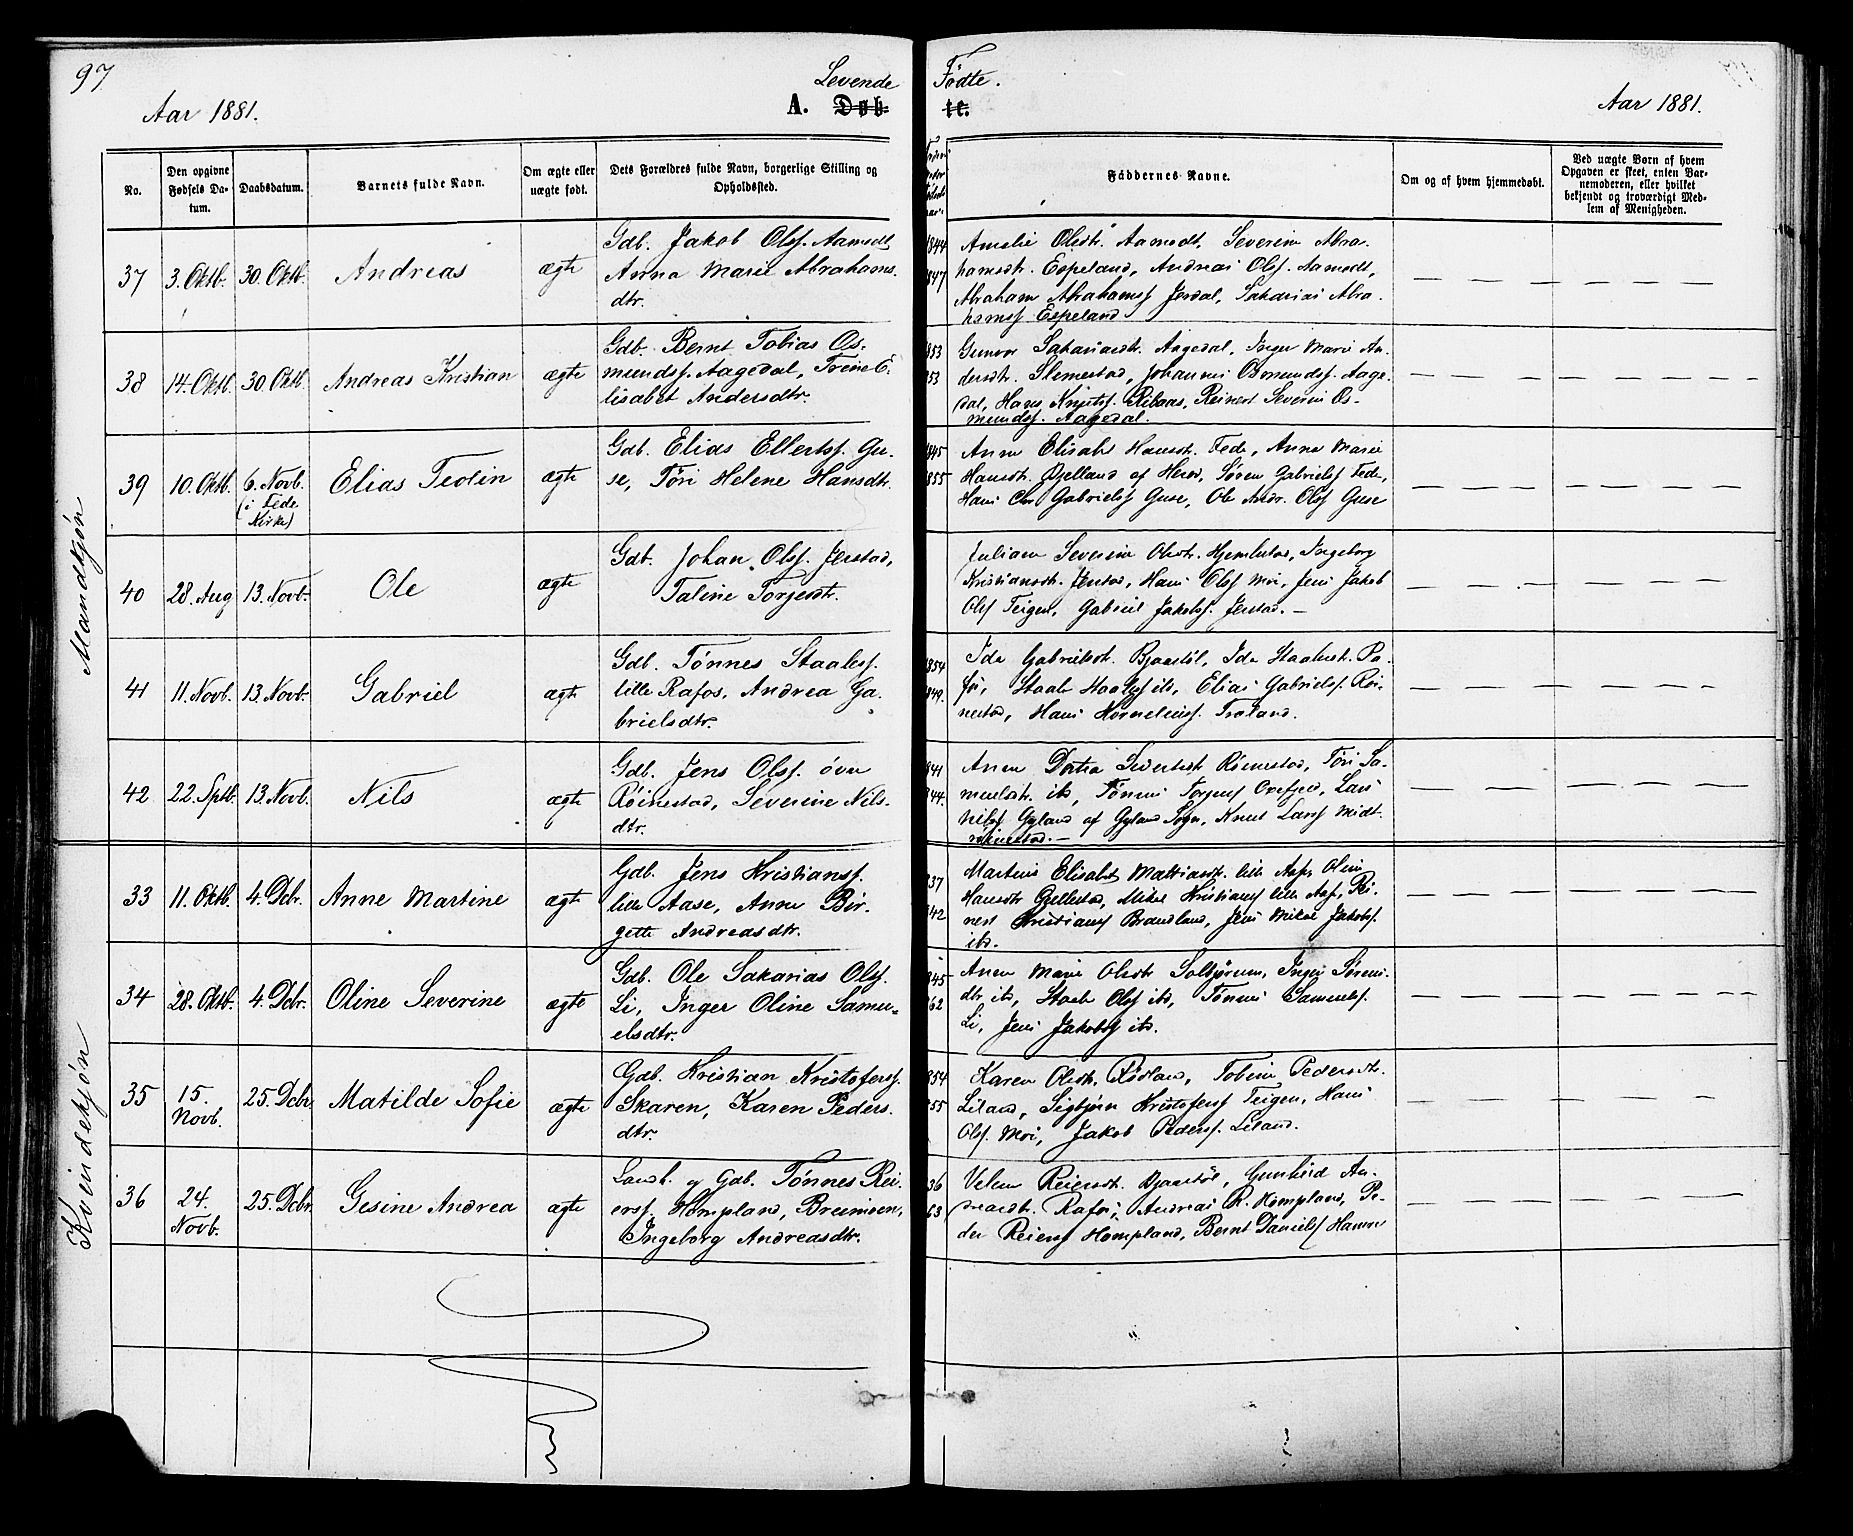 97
Levende Fødte.
Aar 1881. A. Døbte. Aar 1881.
No. | Den opgivne Fødsels Datum. | Daabsdatum. | Barnets fulde Navn. | Om ægte eller uægte født. | Dets Forældres fulde Navn, borgerlige Stilling og Opholdssted. | Faddernes Navne. | Om og af hvem hjemmedøbt. | Ved uægte Børn af hvem Opgaven er skeet, enten Barnemoderen, eller hvilket bekjendt og troværdigt Medlem af Menigheden.
Mandkjøn
37 | 3. Oktb. | 30. Oktb. | Andreas | ægte
Gdb. Jakob Olsf. Aamodt
Anna Marie Abrahams-
dtr.
1844
1847
Amalie Olsdtr. Aamodt, Severine Abra-
hamsdtr. Espeland, Andreas Olsf. Aamodt,
Abraham Abrahamsf Jerdal, Sakarias Abra-
hamsf Espeland
38 | 14. Oktb. | 30. Oktb. | Andreas Kristian | ægte
Gdb. Bernt Tobias Os-
mundsf. Aagedal, Trine E-
lisabet Andersdtr.
853
53
Gunvor Sakariasdtr. Aagedal, Inger Marie An-
dersdtr. Slemestad, Johannes Osmundsf. Aage-
dal, Hans Knutsf. Risaas, Reinert Severin Os-
mundsf. Aagedal.
39 | 10. Oktb. | 6. Novb. (i Fede Kirke) | Elias Teolin | ægte
Gdb. Elias Ellertsf. Gu-
se, Tøri Helene Hansdtr.
845
855
Anne Elisabet Hansdtr. Fede, Anna Marie
Hansdtr. Gjelland af Hered, Søren Gabrielsf Fede,
Hans Chr Gabrielsf Guse, Ole Andr. Olsf Guse
40 | 28. Aug | 13. Novb. | Ole | ægte
Gdb. Johan Olsf. Jerstad,
Taline Torjersdtr.
Juliane Severine Olsdtr. Hjemlestad, Ingeborg
Kristiansdtr. Jerstad, Hans Olsf Moi, Jens Jakob
Olsf Teigen, Gabriel Jakobsf. Jerstad. —
41 | 11. Novb. | 13. Novb. | Gabriel | ægte
Gdb. Tønnes Staalesf.
lille Rafos, Andrea Ga-
brielsdtr.
1854
1849.
Ida Gabrielsdtr. Bjaastøl, Ida Staalesdtr. Ra-
fos, Staale Staalesf ibd, Elias Gabrielsf. Røi-
nestad, Hans Korneliusf. Træland.
42 | 22. Sptb. | 13. Novb. | Nils | ægte
Gdb. Jens Olsf. øvre
Røinestad, Severine Nils-
dtr.
1841
1844.
Anne Dortea Sivertsdtr Røinestad, Tøri Sa-
muelsdtr. ibd, Tønnes Torjersf Ovefjeld, Lars
Nilsf Gyland af Gyland Sogn, Knut Larsf Midt-
røinestad. —
Kvindekjøn
33 | 11. Oktb. | 4. Dcbr. | Anne Martine | ægte
Gdb. Jens Kristiansf.
lille Aase, Anne Bir-
gette Andreasdtr.
37
42
Martine Elisabet Mattiasdtr. lille Aase, Oline
Hansdtr Gullestad, Mikal Kristiansf lille Aase, Rei-
nert Kristiansf Brandland, Jens Mikal Jakobsf.
ibd.
34 | 28. Oktb. | 4. Dcbr. | Oline Severine | ægte
Gdb. Ole Sakarias Olsf.
Li, Inger Oline Samu-
elsdtr.
845
62
Anne Marie Olsdtr Solbjørum, Inger Sørens-
dtr, ibd, Staale Olsf ibd, Tønnes Samuelsf.
Li, Jens Jakobsf ibd.
35 | 15. Novb. | 25. Dcbr | Matilde Sofie | ægte
Gdb. Kristian Kristofersf.
Skaren, Karen Peders-
dtr.
854
55
Karen Olsdtr. Rødland, Tobine Pedersdtr.
Liland, Sigbjørn Kristofersf Teigen, Hans
Olsf. Moi, Jakob Pedersf. Liland.
36 | 24. Novb. | 25. Dcbr. | Gesine Andrea | ægte
Landh. og Gdb. Tønnes Rei-
ersf. Hompland, Breimoen,
Ingeborg Andreasdtr.
36
63
Velene Reiersdtr. Bjaastøl, Gunhild An-
dreasdtr. Rafos, Andreas R. Hompland, Pe-
der Reiersf Hompland, Bernt Danielsf Hamre